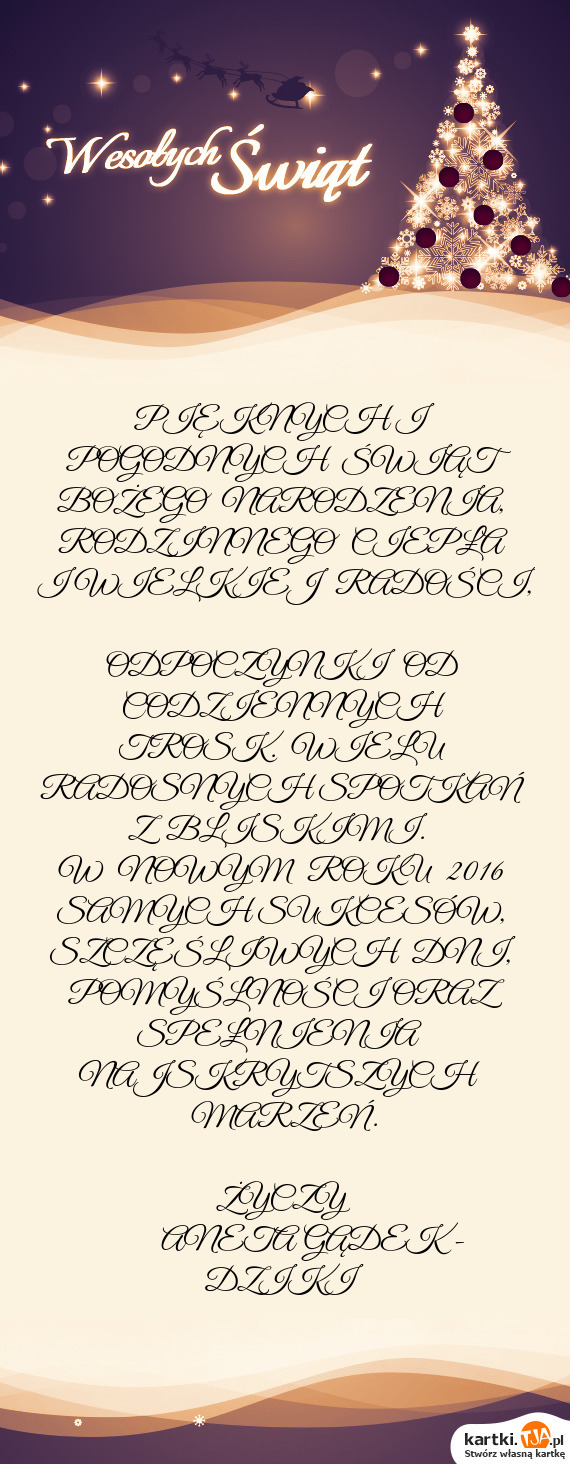 Wesołych Świąt
PIĘKNYCH I
POGODNYCH ŚWIĄT
BOŻEGO NARODZENIA,
RODZINNEGO CIEPŁA
I WIELKIEJ RADOŚCI,
ODPOCZYNKI OD
CODZIENNYCH
TROSK. WIELU
RADOSNYCH SPOTKAŃ
Z BLISKIMI.
W NOWYM ROKU 2016
SAMYCH SUKCESÓW,
SZCZĘŚLIWYCH DNI,
POMYŚLNOŚCI ORAZ
SPEŁNIENIA
NAJSKRYTSZYCH
MARZEŃ.
ŻYCZY
ANETA GĄDEK -
DZIKI
kartki.TJA.pl
Stwórz własną kartkę